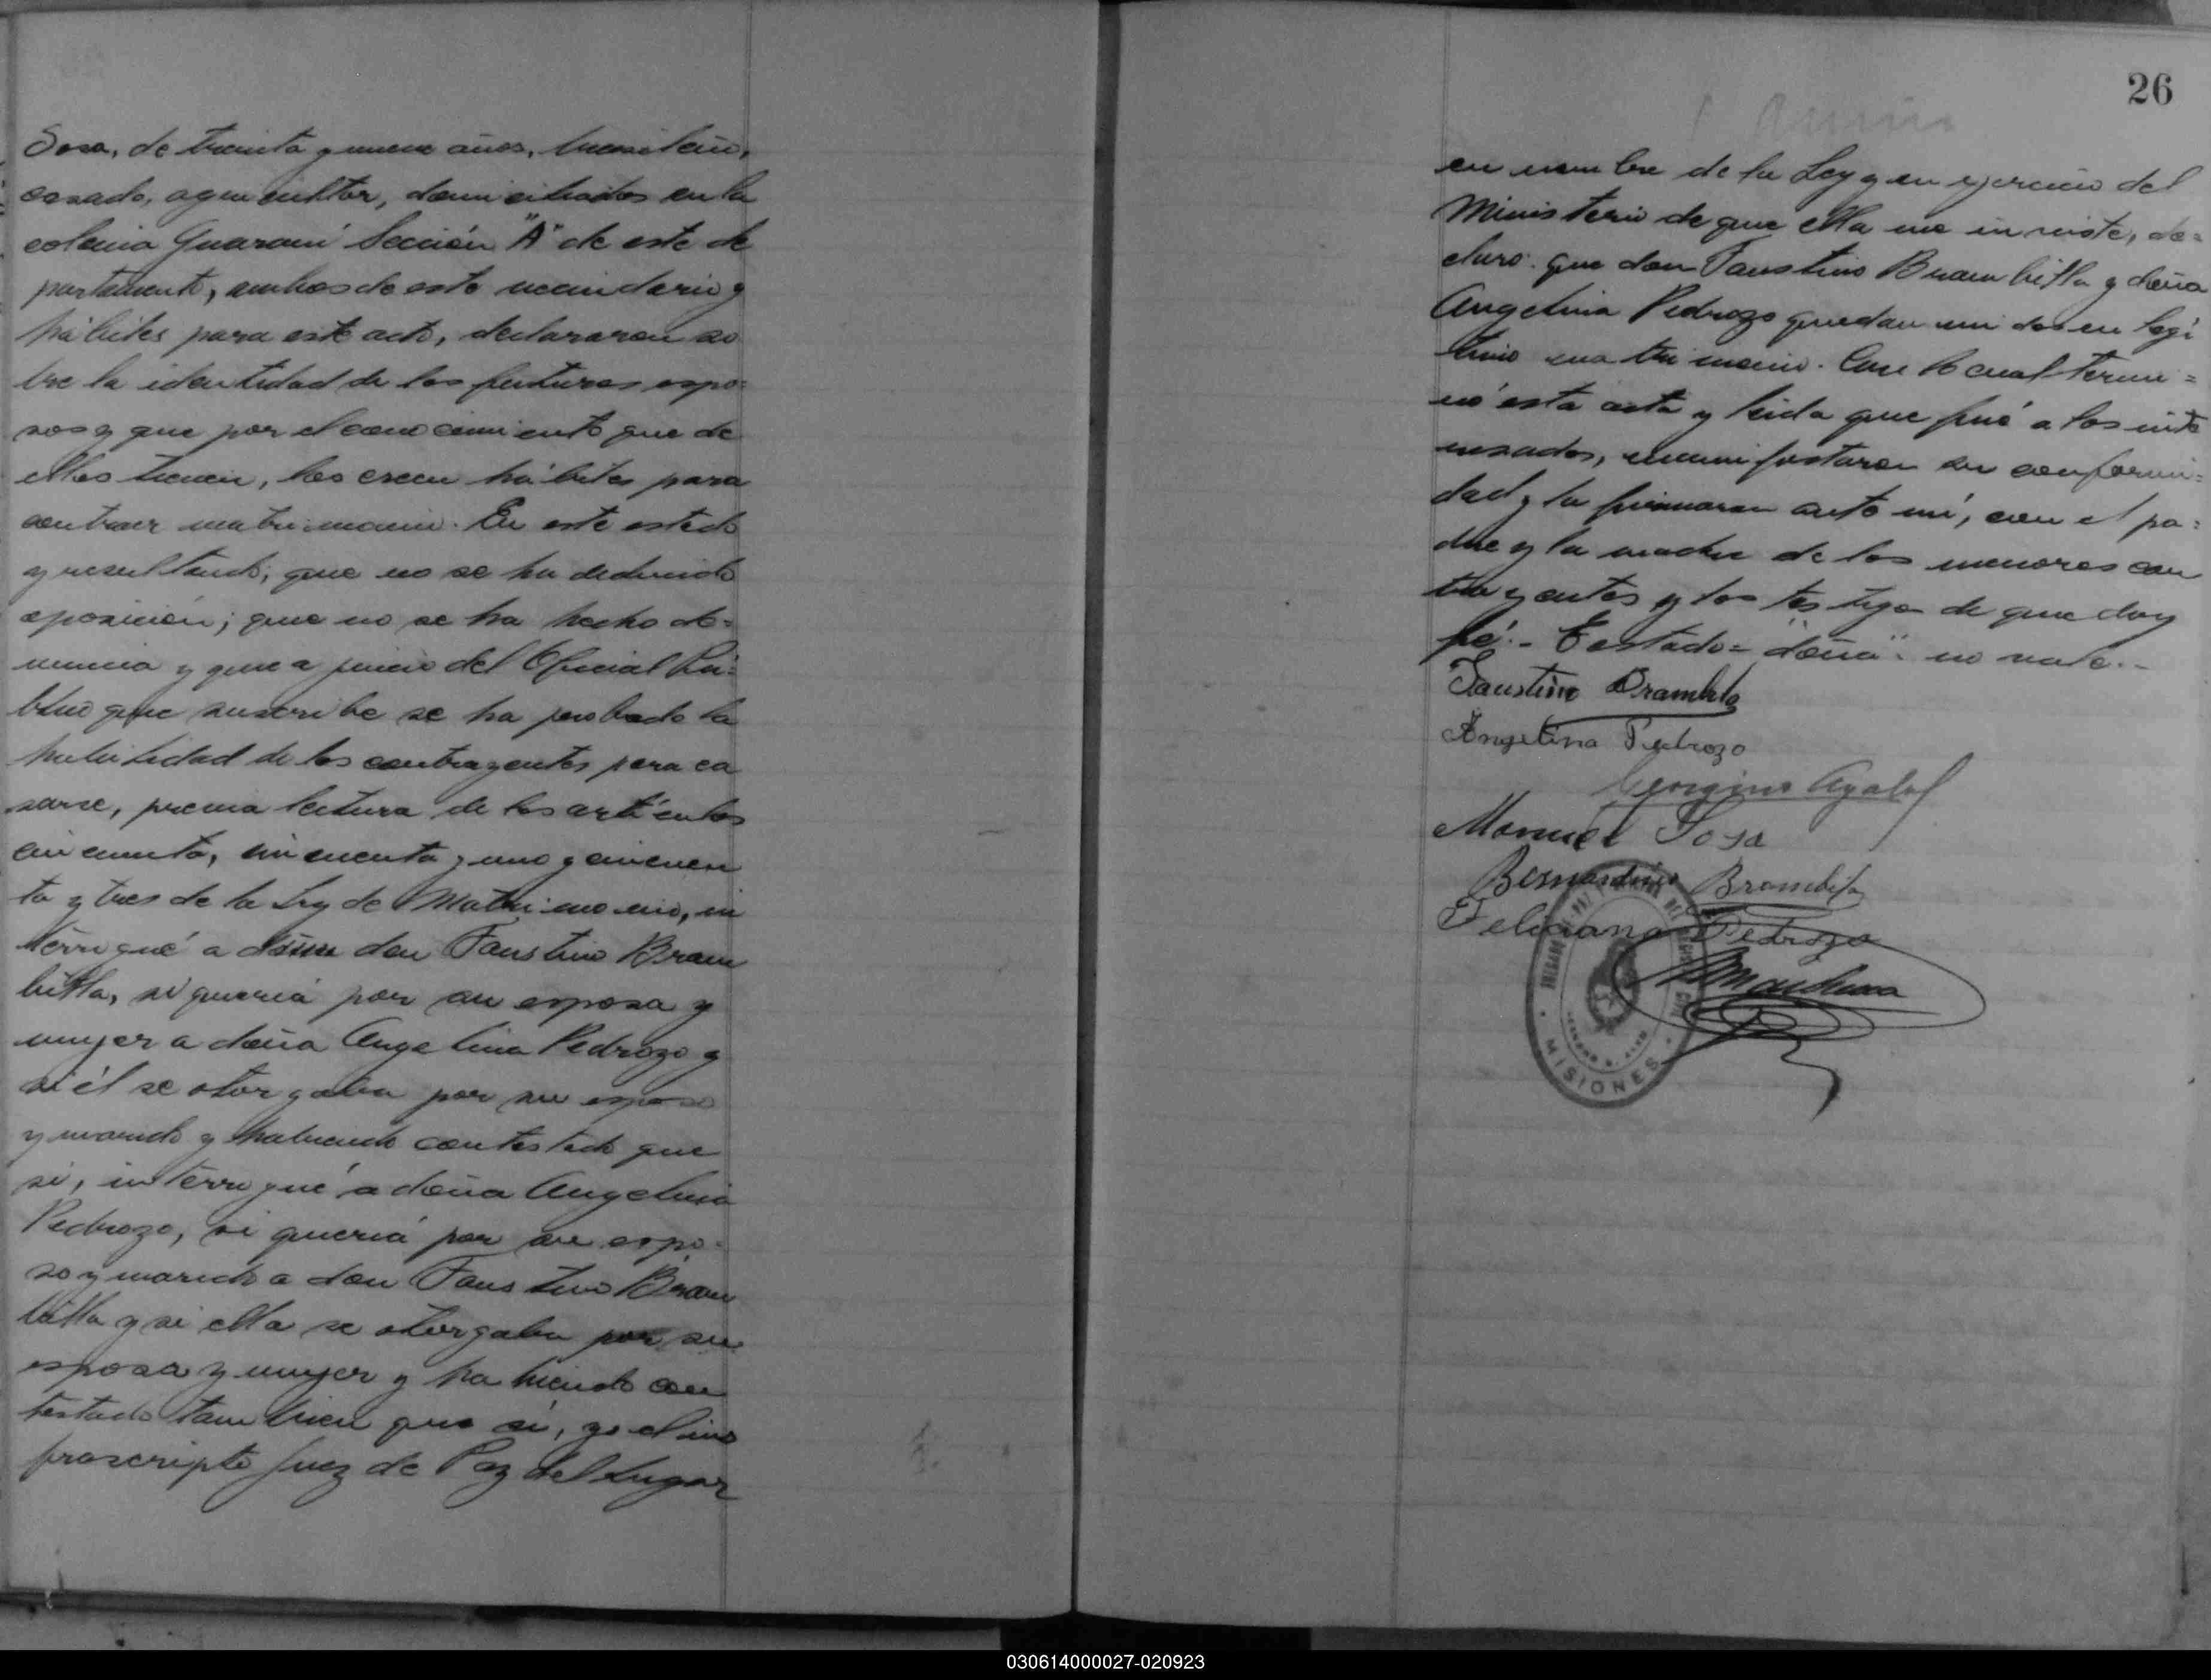 Sosa, de treinta y nueve años, brasileño,
casado, agricultor, domiciliados en la
colonia Guaraní Sección "A" de este de
partamento, ambos de este vecindario y
hábiles para este acto, declararon so
bre la identidad de los futuros espo=
sos y que por el conocimiento que de
ellos tienen, los creen hábiles para
contraer matrimonio. En este estado
y resultando; que no se ha deducido
oposición; que no se ha hecho de=
nuncia y que a juicio del Oficial Pú=
blico que suscribe se ha probado la
habilidad de los contrayentes para ca
sarse, previa lectura de los artículos
cincuenta, cincuenta y uno y cincuen
ta y tres de la Ley de Matrimonio, in
terrogué a doña don Faustino Bram
billa, si quería por su esposa y
mujer a doña Angelina Pedrozo y
si él se otorgaba por su esposo
y marido y habiendo contestado que
si, interrogué a doña Angelina
Pedrozo, si quería por su espo=
so y marido a don Faustino Bram
billa y si ella se otorgaba por su
esposa y mujer y habiendo con
testado tambien que sí, yo el in
frascripto Juez de Paz del Lugar
26
en nombre de la Ley y en ejercicio del
Ministerio de que ella me inviste, de=
claro: que don Faustino Brambilla y doña
Angelina Pedrozo quedan unidos en legí
timo matrimonio. Con lo cual termi=
nó esta acta y leida que fué a los inte
resados, manifestaron su conformi=
dad y la firmaron ante mí, con el pa=
dre y la madre de los menores con
trayentes y los testigos de que doy
fé.- Testado= "doña": no vale.-
Faustino Brambila
Angelina Pedrozo
Ayala
Manuel Sosa
Bernardino Brambila
Feliciana Pedrozo
MISIONES
030614000027-020923